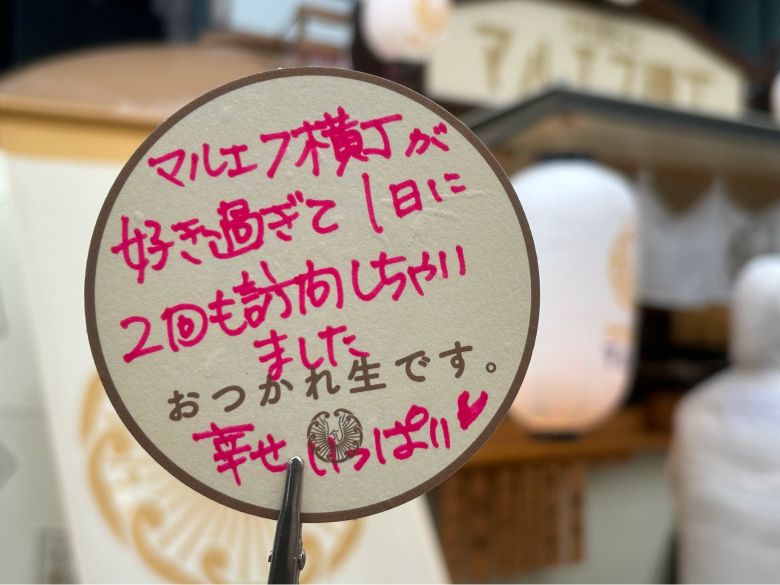 マルエフ横丁
マルエフ横丁が
好き過ぎて1日に
2回も訪問しちゃい
ました
おつかれ生です。
幸せいっぱい